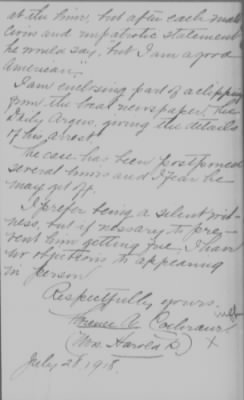 at the time, but after each
and unpatriotic statement
he would say, but I am a good
American."
I am enclosing part of a clipping
from the local newspaper, The
Daily Argus, giving the details
of his arrest.
The case has been postponed
several times and I fear he
may get off.
I prefer being a silent wit-
ness, but if nessary to pre-
vent him getting free, I have
no objections to appearing
in person.
Respectfully yours,
Florence V. Cochrane
(Mrs. Harold D) x
July 28 1918.